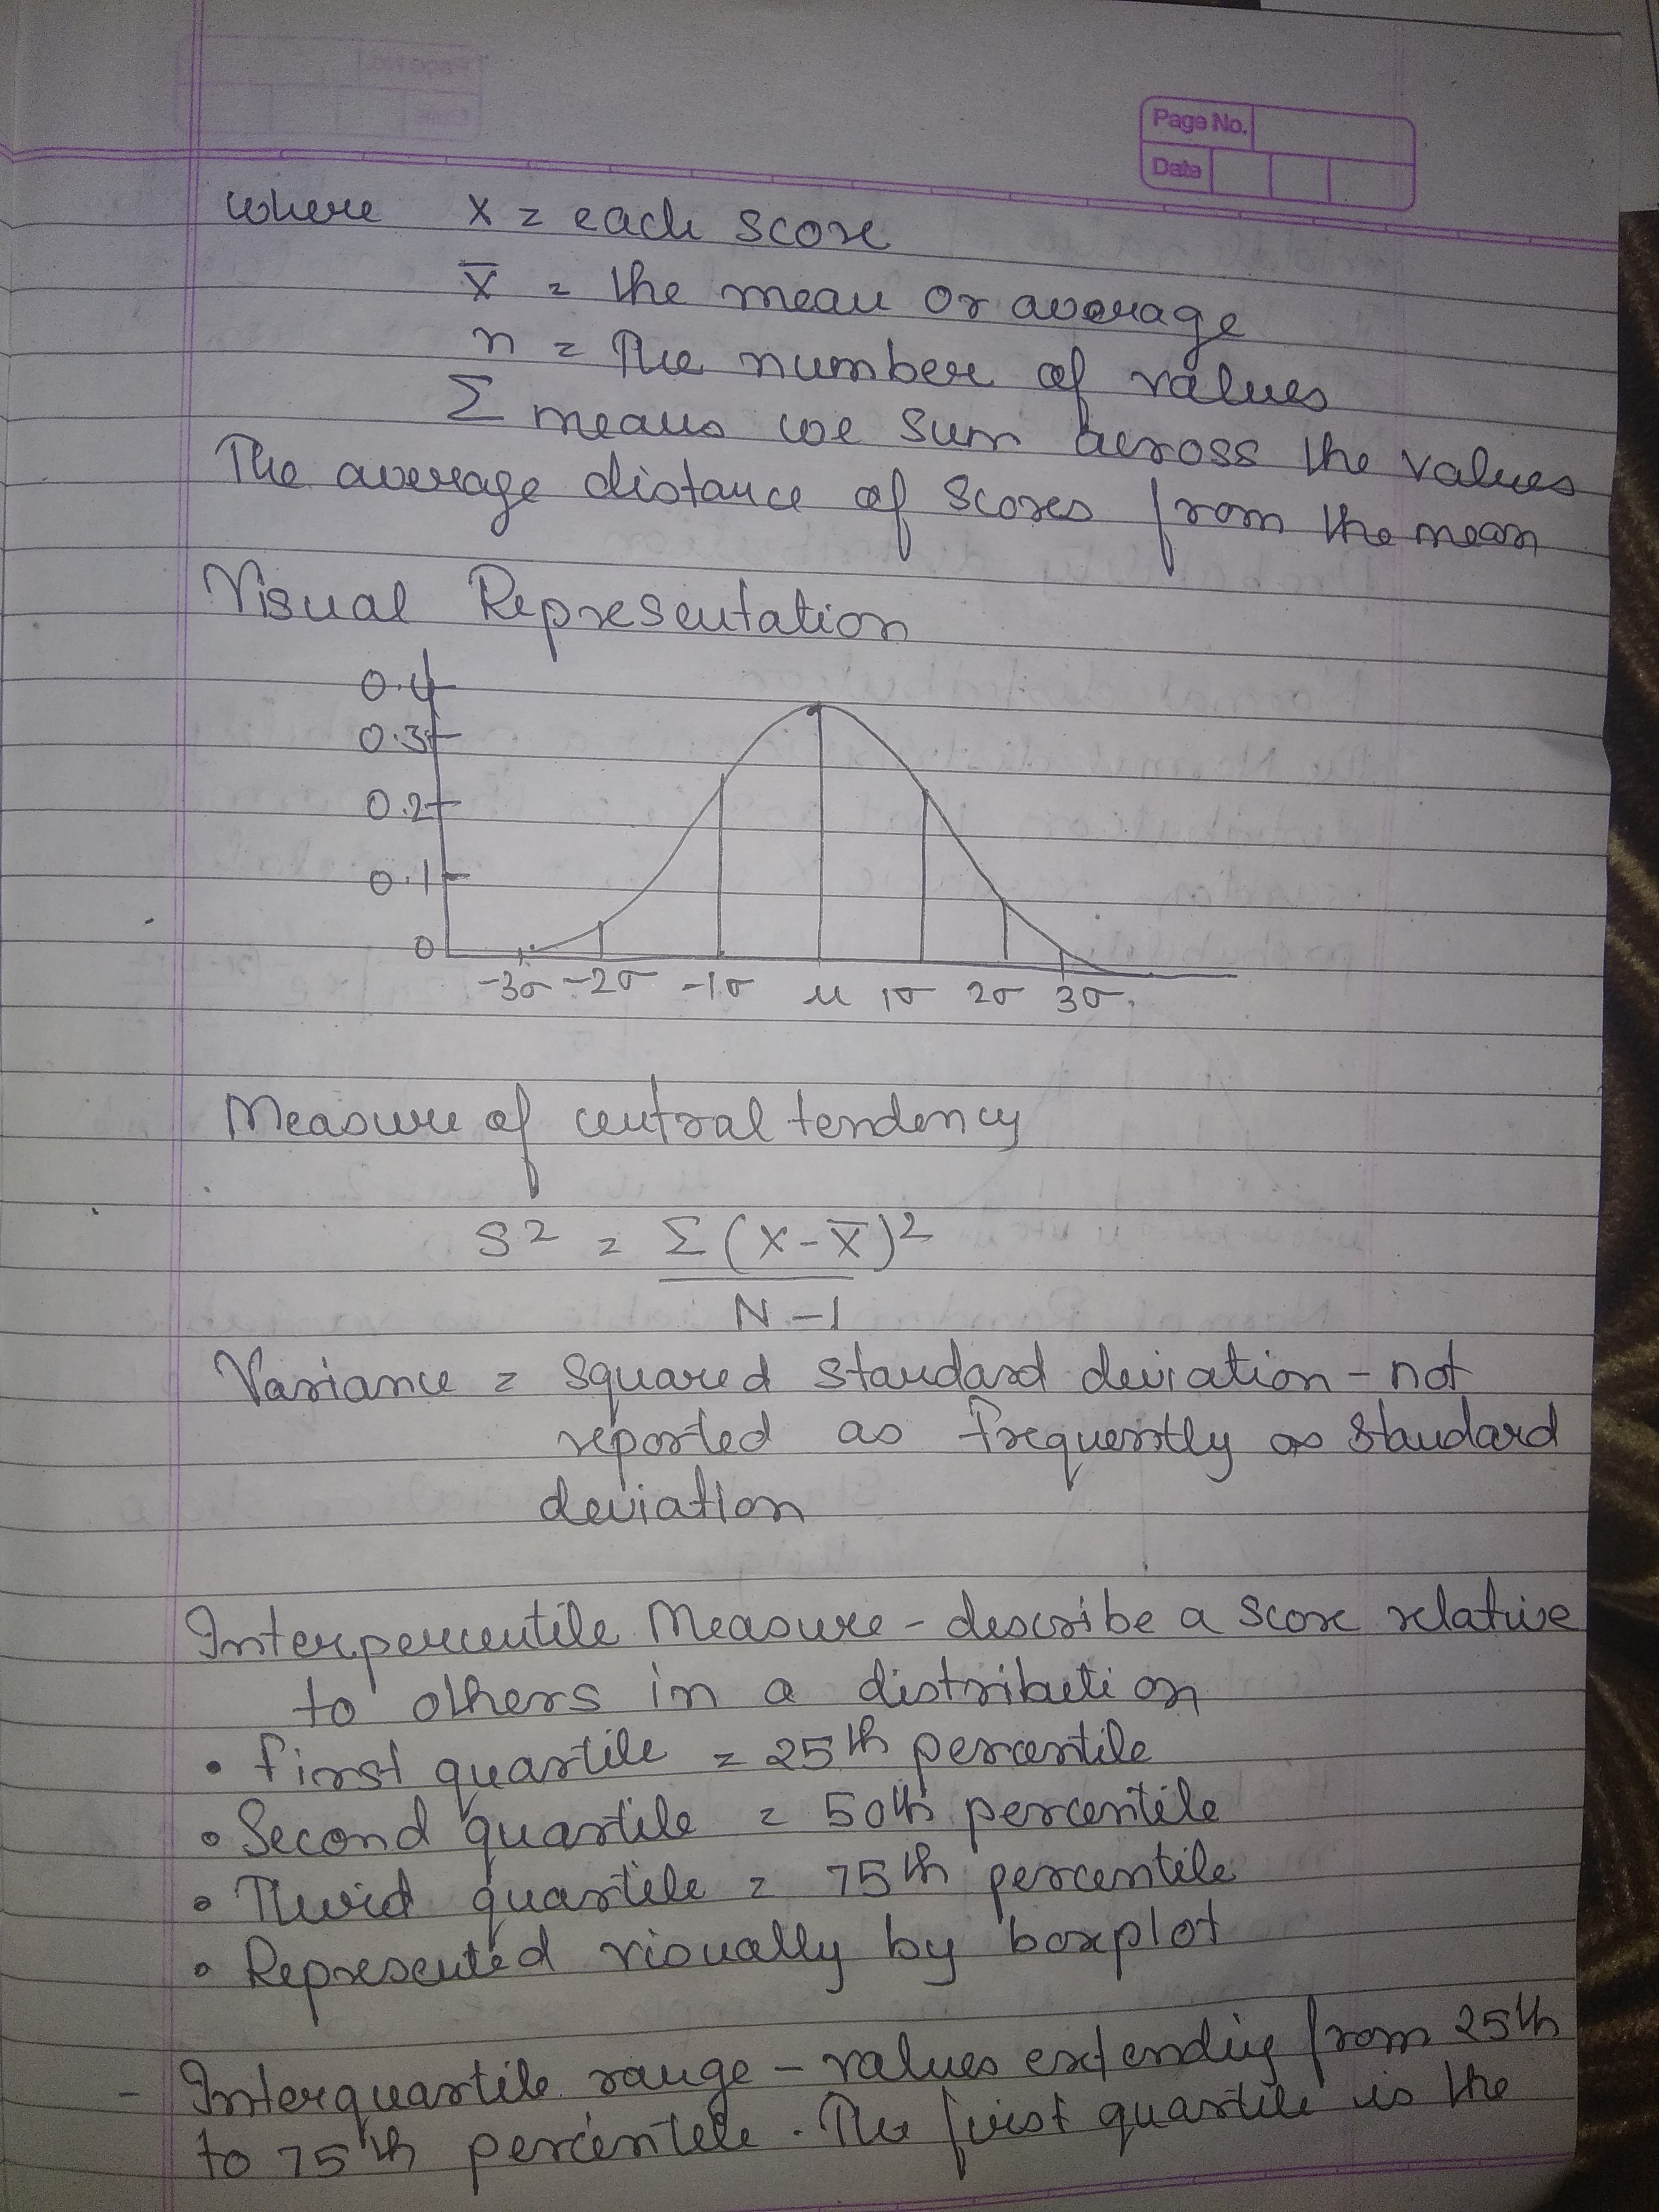 Page No.
Date
where x = each score
x̄ = the mean or average
n = The number of values
Σ means we sum across the values
The average distance of scores from the mean
Visual Representation
0.4
0.3
0.2
0.1
0
-3σ -2σ -1σ μ 1σ 2σ 3σ.
Measure of central tendency
S² = Σ(x-x̄)²
N-1
Variance = squared standard deviation - not
reported as frequently as standard
deviation
Interpercentile Measure - describe a score relative
to others in a distribution
• first quartile = 25th percentile
• Second quartile = 50th percentile
• Third quartile = 75th percentile
• Represented visually by boxplot
- Interquartile range - values extending from 25th
to 75th percentile. The first quartile is the